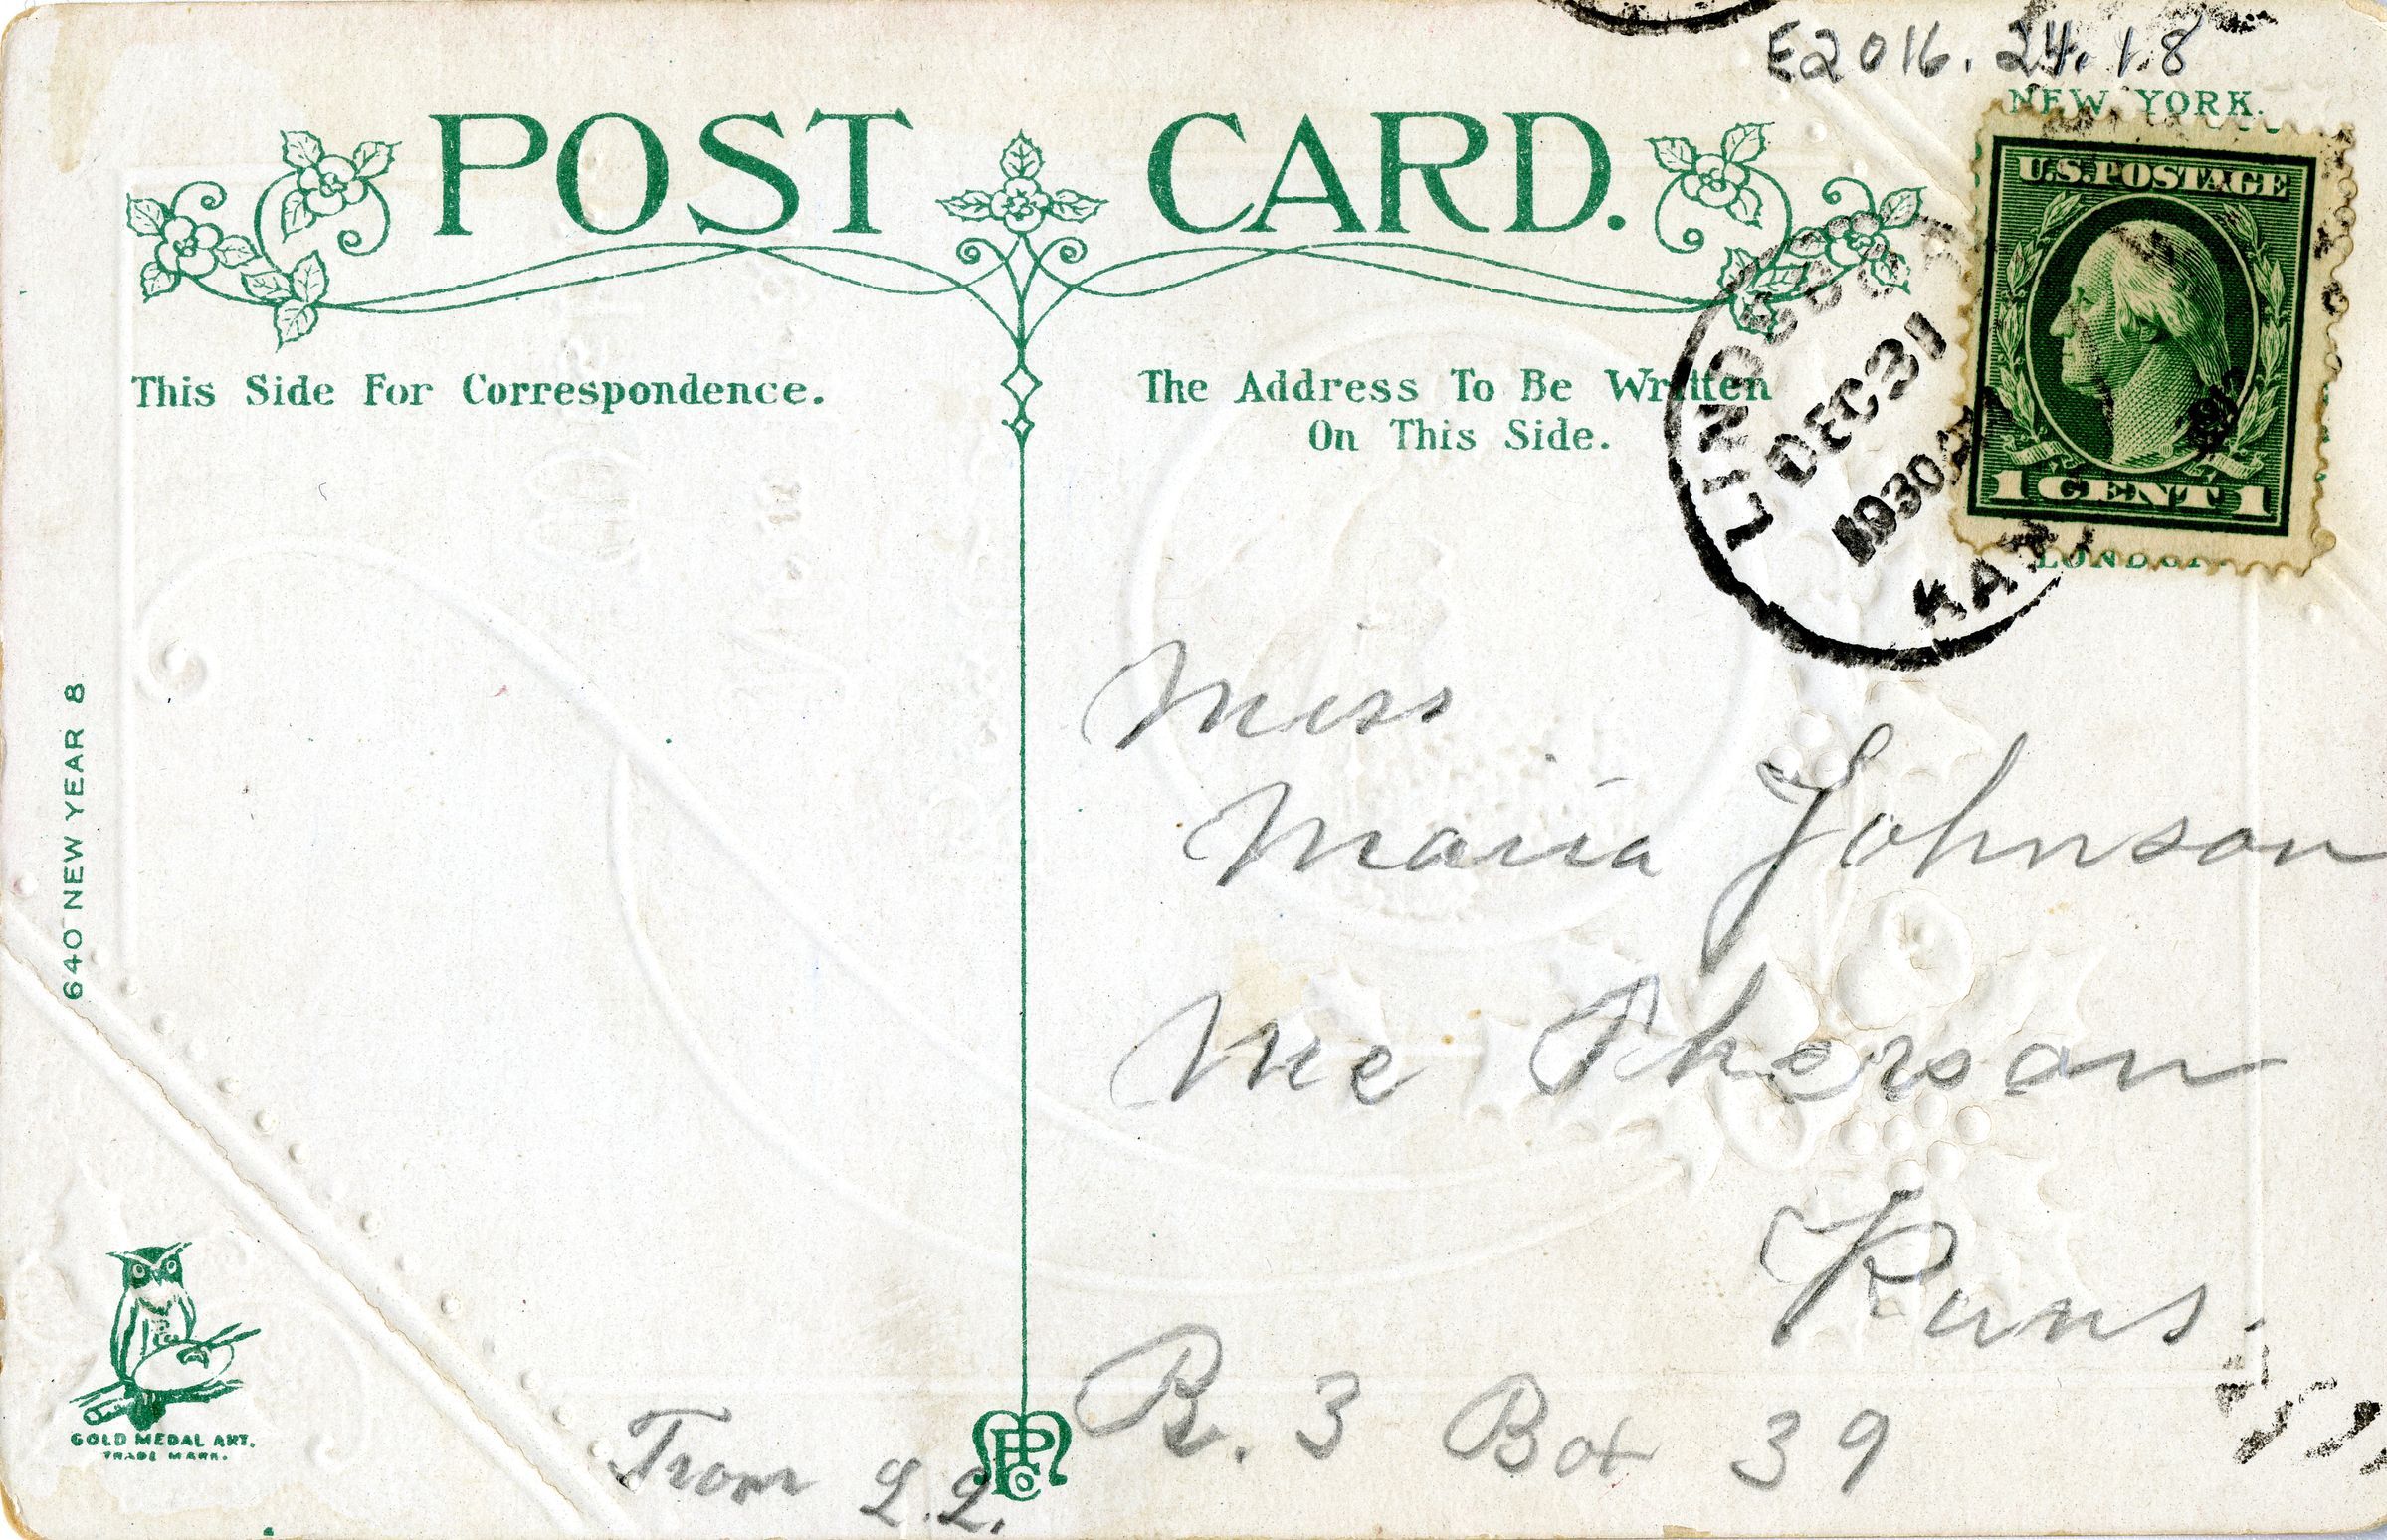 E2016.24.18
NEW YORK.
POST CARD.
U.S. POSTAGE
1 CENT 1
LONDON.
LINDSBORG
DEC 31
1030A
KAN
This Side For Correspondence.
The Address To Be Written
On This Side.
Miss
Maria Johnson
Mc Pherson
Kans.
R. 3 Box 39
From L.L.
640 NEW YEAR 8
GOLD MEDAL ART.
TRADE MARK.